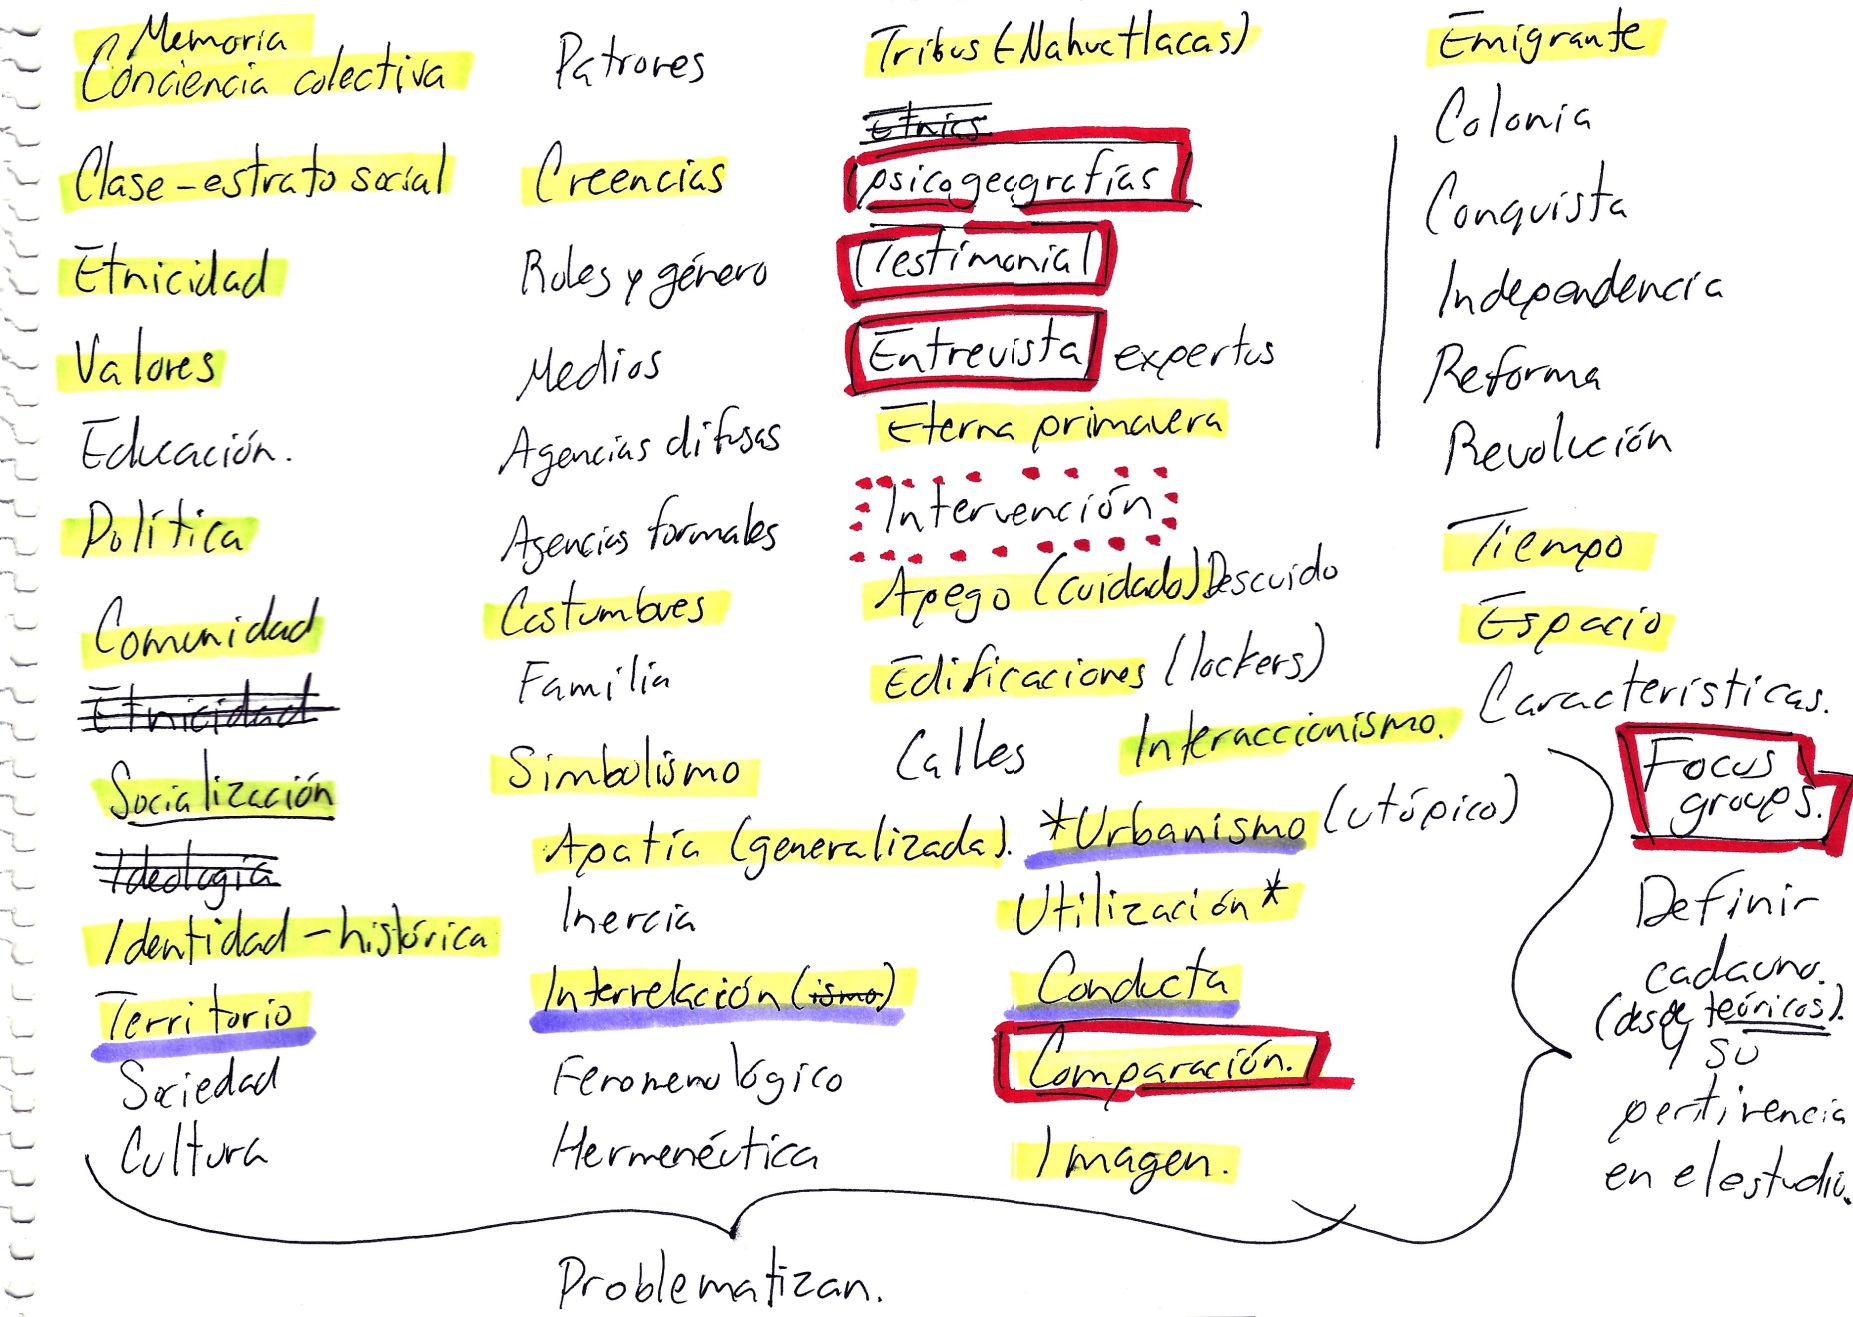 Memoria
Conciencia colectiva
Clase-estrato social
Etnicidad
Valores
Educación.
Política
Comunidad
Etnicidad
Socialización
Ideología
Identidad-histórica
Territorio
Sociedad
Cultura
Patrones
Creencias
Roles y género
Medios
Agencias difusas
Agencias formales
Costumbres
Familia
Simbolismo
Apatía (generalizada).
Inercia
Interrelación (ismo)
Fenomenológico
Hermenéutica
Tribus (Nahuatlacas)
Etnias
psicogeografías
Testimonial
Entrevista expertos
Eterna primavera
Intervención
Apego (cuidado) Descuido
Edificaciones (lockers)
Calles
Interaccionismo.
*Urbanismo (utópico)
Utilización*
Conducta
Comparación.
Imagen.
Emigrante
Colonia
Conquista
Independencia
Reforma
Revolución
Tiempo
Espacio
Características.
Focus
groups.
Definir
cada uno.
(desde teóricos).
y su
pertinencia
en el estudio.
Problematizan.